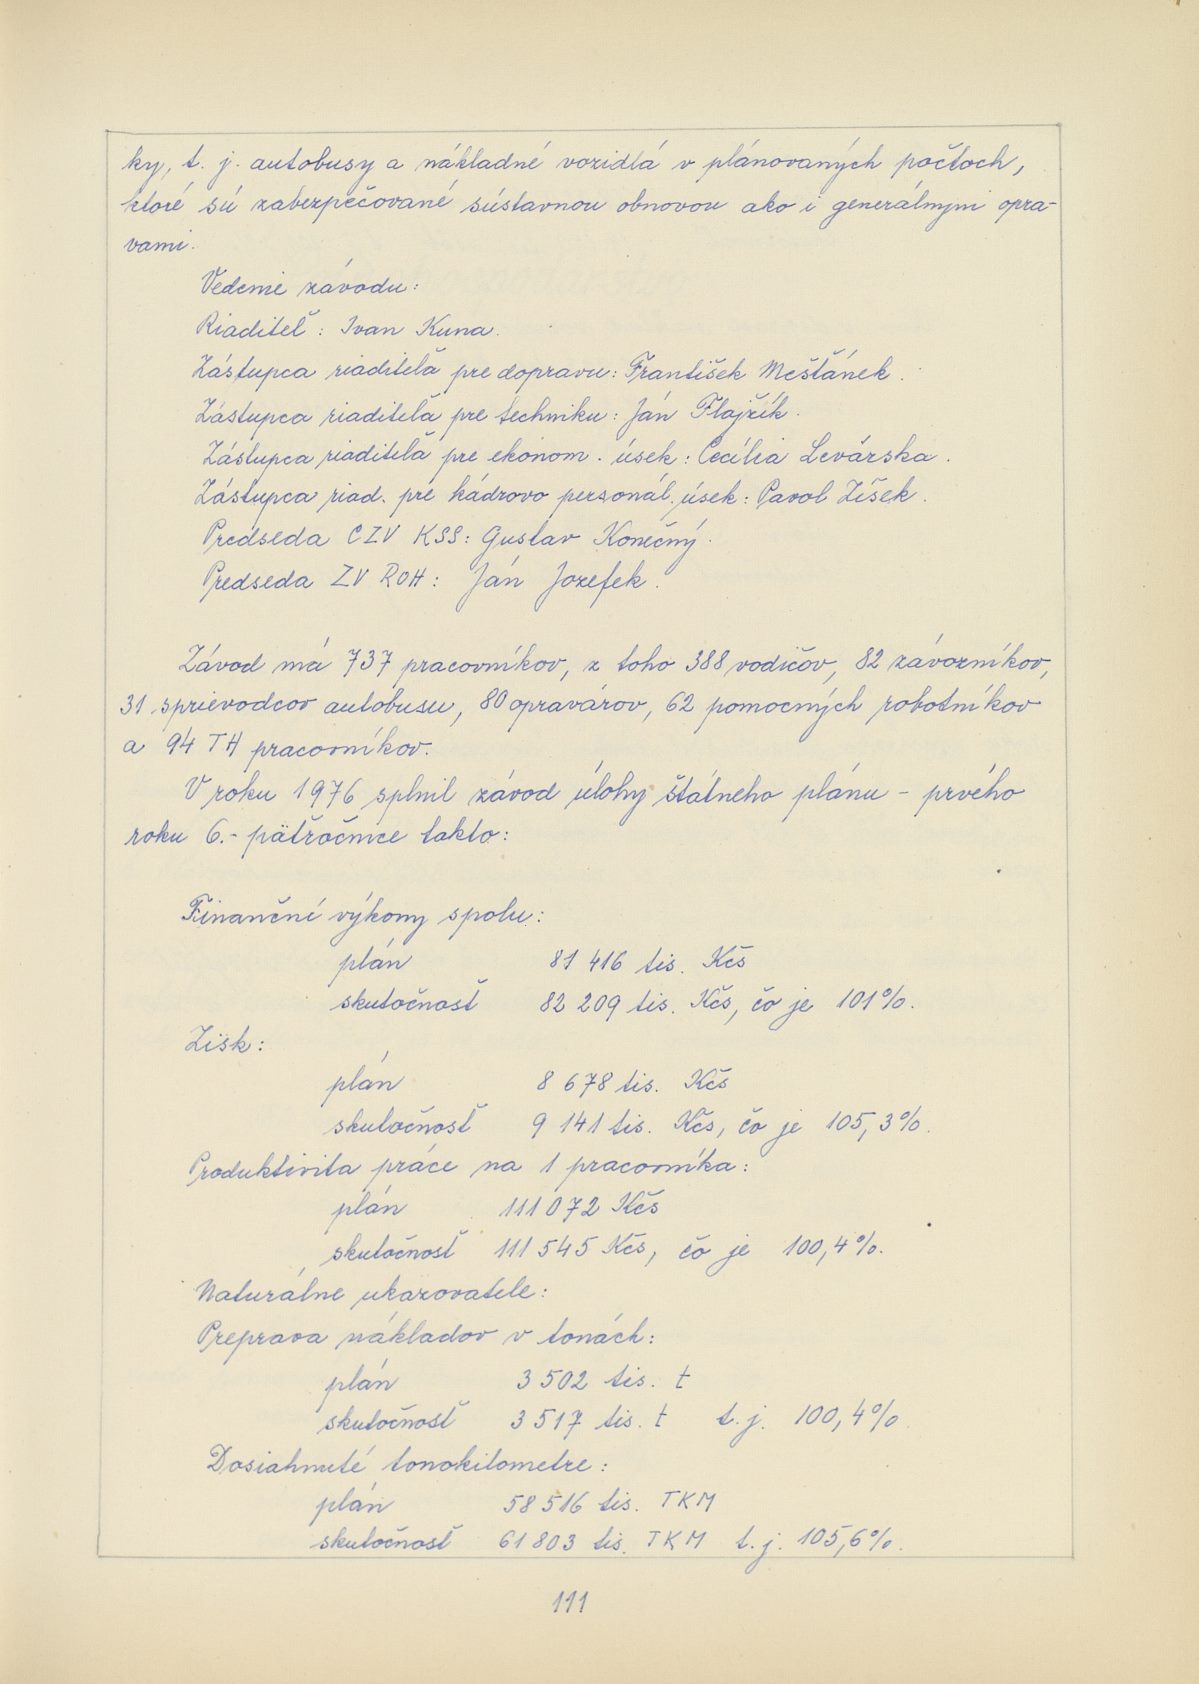 ky, t. j. autobusy a nákladné vozidlá v plánovaných počtoch,
ktoré sú zabezpečované sústavnou obnovou ako i generálnymi opra-
vami.
Vedenie závodu:
Riaditeľ: Ivan Kuna.
Zástupca riaditeľa pre dopravu: František Mešťánek.
Zástupca riaditeľa pre techniku: Ján Flajžík.
Zástupca riaditeľa pre ekonom. úsek: Cecília Levárska.
Zástupca riad. pre kádrovo personál. úsek: Pavol Zíšek.
Predseda CZV KSS: Gustav Konečný.
Predseda ZV ROH: Ján Jozefek.
Závod má 737 pracovníkov, z toho 388 vodičov, 82 závozníkov,
31 sprievodcov autobusu, 80 opravárov, 62 pomocných robotníkov
a 94 TH pracovníkov.
V roku 1976 splnil závod úlohy štátneho plánu - prvého
roku 6.- päťročnice takto:
Finančné výkony spolu:
plán 81 416 tis. Kčs
skutočnosť 82 209 tis. Kčs, čo je 101%.
Zisk:
plán 8 678 tis. Kčs
skutočnosť 9 141 tis. Kčs, čo je 105,3%.
Produktivita práce na 1 pracovníka:
plán 111 072 Kčs
skutočnosť 111 545 Kčs, čo je 100,4%.
Naturálne ukazovatele:
Preprava nákladov v tonách:
plán 3 502 tis. t
skutočnosť 3 517 tis. t t. j. 100,4%
Dosiahnuté tonokilometre:
plán 58 516 tis. TKM
skutočnosť 61 803 tis. TKM t. j. 105,6%.
111